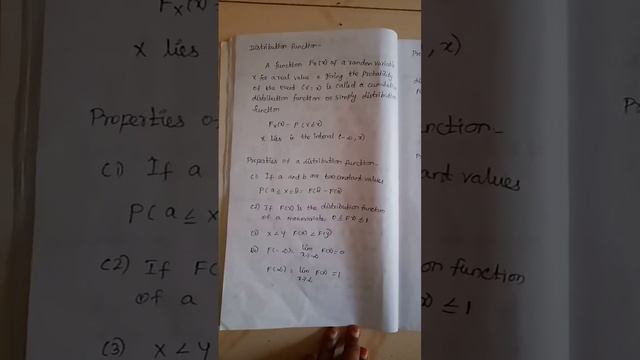 Distribution function-
A function Fx(x) of a random variable
x for a real value x giving the probability
of the event (x≤x) is called a cumulative
distribution function or simply distribution
function
Fx(x) = P(x≤x)
x lies in the interval (-∞, x)
Properties of a distribution function-
(1) If a and b are two constant values
P(a≤x≤b) = F(b) - F(a)
(2) If F(x) is the distribution function
of a 0≤F(x)≤1
(3) x<y F(x)<F(y)
(4) F(-∞) = lim F(x)=0
x→-∞
F(∞) = lim F(x) = 1
x→∞